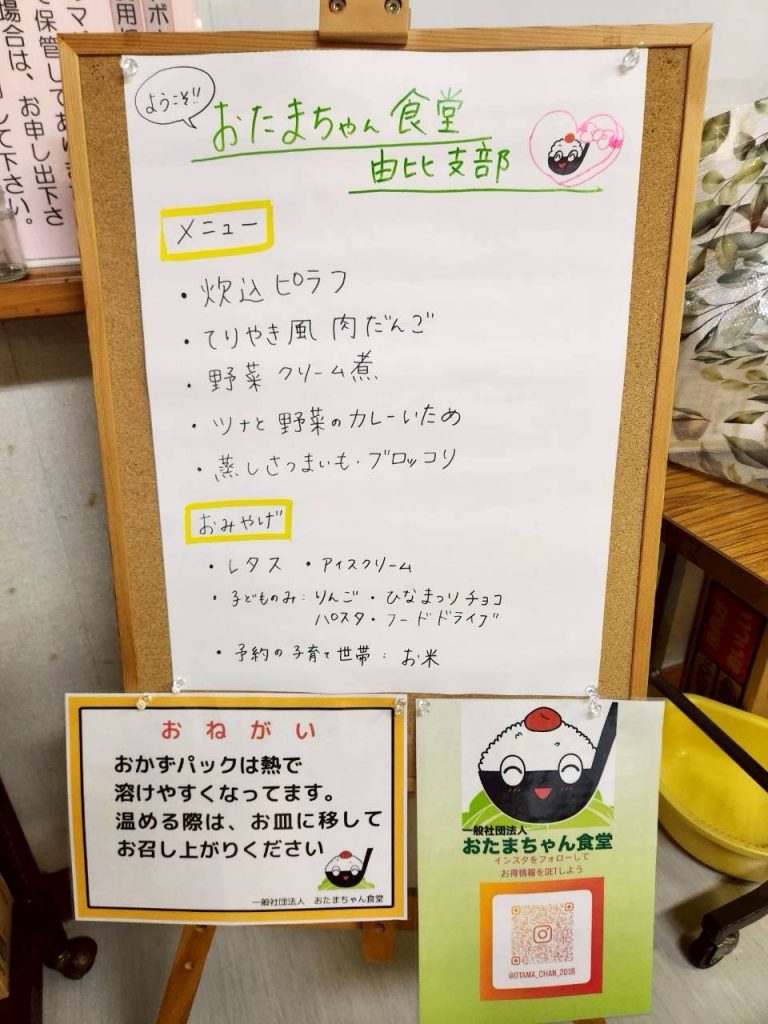 て保管してあ
場合は、お申し出下さ
して下さい。
ようこそ!!
おたまちゃん食堂
由比支部
メニュー
・炊込ピラフ
・てりやき風肉だんご
・野菜クリーム煮
・ツナと野菜のカレーいため
・蒸しさつまいも・ブロッコリ
おみやげ
・レタス ・アイスクリーム
・子どものみ:りんご・ひなまつりチョコ
パスタ・フードドライブ
・予約の子育て世帯: お米
おねがい
おかずパックは熱で
溶けやすくなってます。
温める際は、お皿に移して
お召し上がりください
一般社団法人 おたまちゃん食堂
一般社団法人
おたまちゃん食堂
インスタをフォローして
お得情報をGETしよう
@OTAMA_CHAN_2016
おいしい